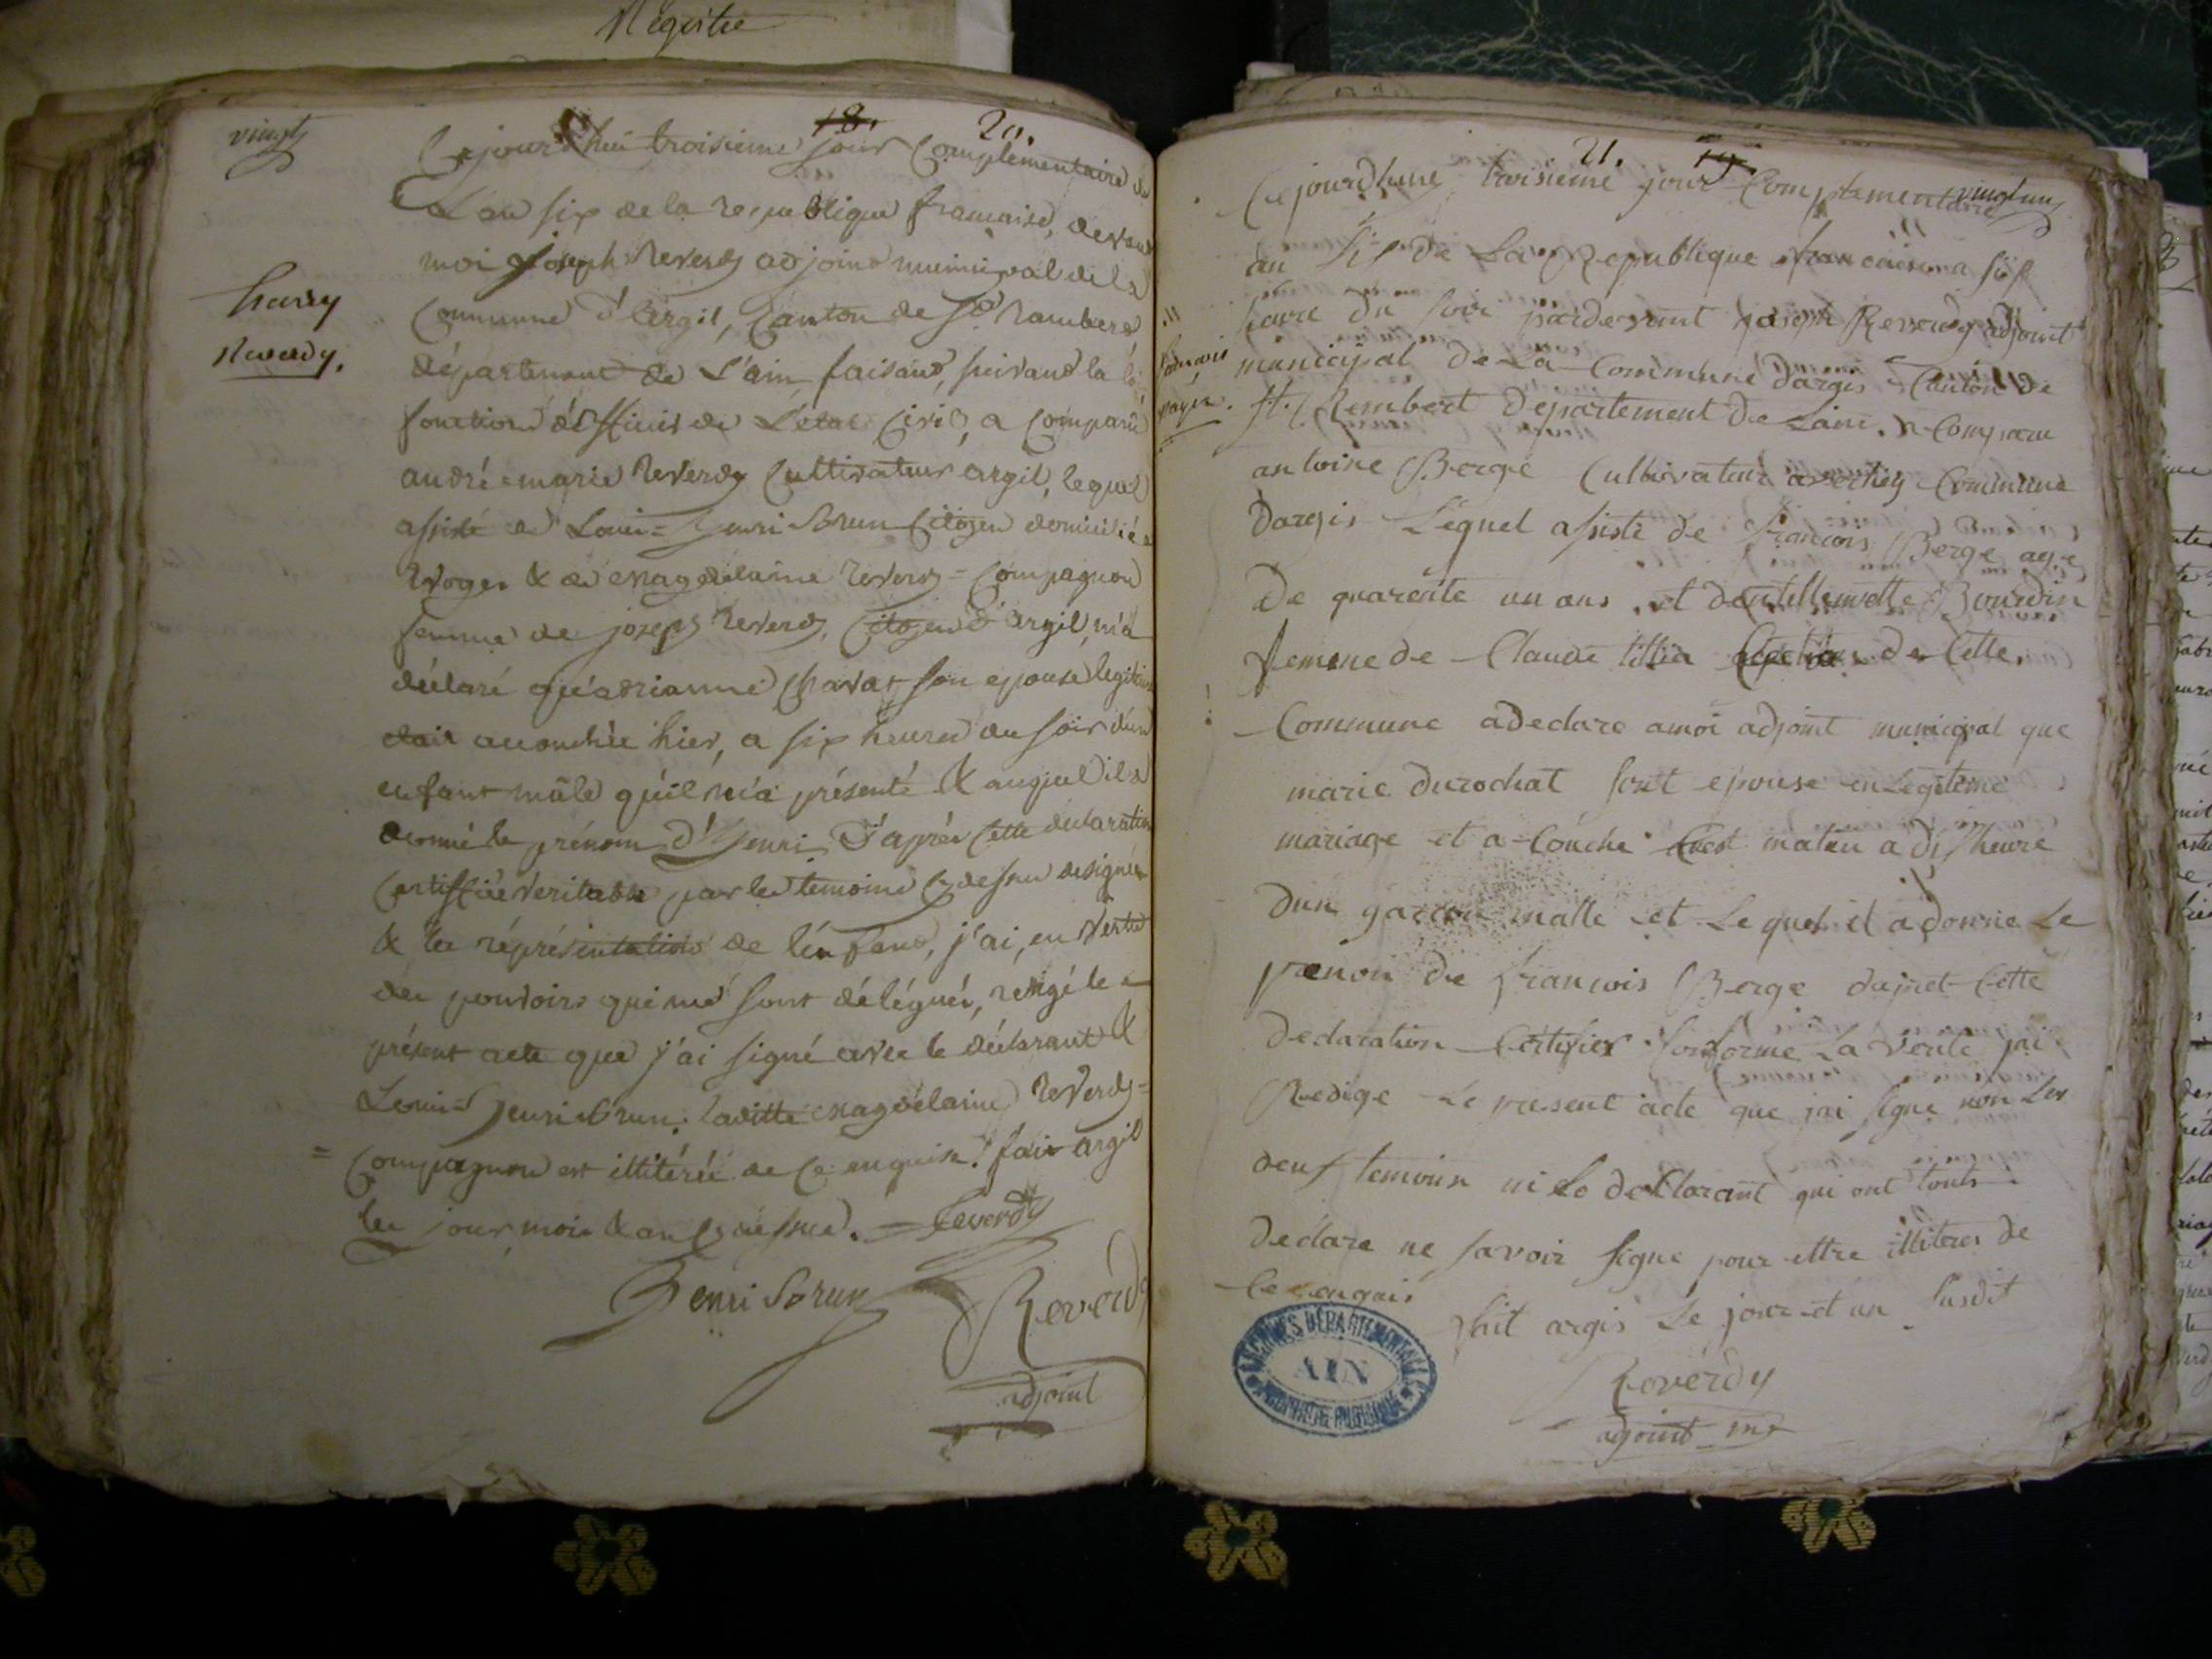 Registre
18. 20.
vingt
Cejourd'hui troisieme jour Complementaire de
L'an six de la republique francaise, devant
moi joseph Reverdy adjoint municipal de la
henry
Reverdy.
Commune d'Argil, Canton de St Rambert,
département de L'ain faisant, suivant la loi
fonction d'officier de L'état Civil, a comparu
andré=marie Reverdy Cultivateur argil, lequel
assisté de Louis=henri Brun Citoyen domicilié a
& de magdelaine Reverdy=Compagnon
femme de joseph Reverdy, Citoyen d'argil, m'a
déclaré qu'adrianne Chavat son epouse legitime
étoit accouchée hier, a six heures du soir d'un
enfant mâle qu'il m'a présenté & auquel il a
donné le prénom d'henri D'après Cette declaration
Certifiée veritable par les temoins Cy dessus designés
& la réprésentation de l'enfant, j'ai, en vertu
des pouvoirs qui me sont délégués, redigé le
présent acte que j'ai signé avec le déclarant &
Louis=henri Brun. laditte magdelaine Reverdy=
=Compagnon est illitérée de Ce enquise. fait argil
les jour, mois & an Cy dessus. Reverdy
henri Brun Reverdy
adjoint
21. 19
vingt un
Cejourdhuy troisieme jour Complementaire
an Six de La Republique francaise a six
heure du soir pardevant joseph Reverdy adjoint
francois
municipal de La Commune dargis Canton de
St. Rembert Departement de Lain. a Comparu
antoine Berge Cultivateur Commune
Dargis Lequel assiste de francois Berge age
De quarente un ans et Bourdin
femme de Claude de Cette
Commune a Declare a moi adjoint municipal que
marie Durochat son epouse en Legitime
mariage et a Couche Cest matin a dis heure
Dun garcon malle et Le quel il a donne Le
prenon de francois Berge dapret Cette
Declaration Certifier Conforme La verite jai
Redige Le present acte que jai signe non Les
deus temoins ni Le declarant qui ont touts
Declare ne savoir signe pour ettre illiteres de
Ce enquis
fait argis Le jour et an susdit
ARCHIVES DÉPARTEMENTALES
AIN
Reverdy
adjoint mal